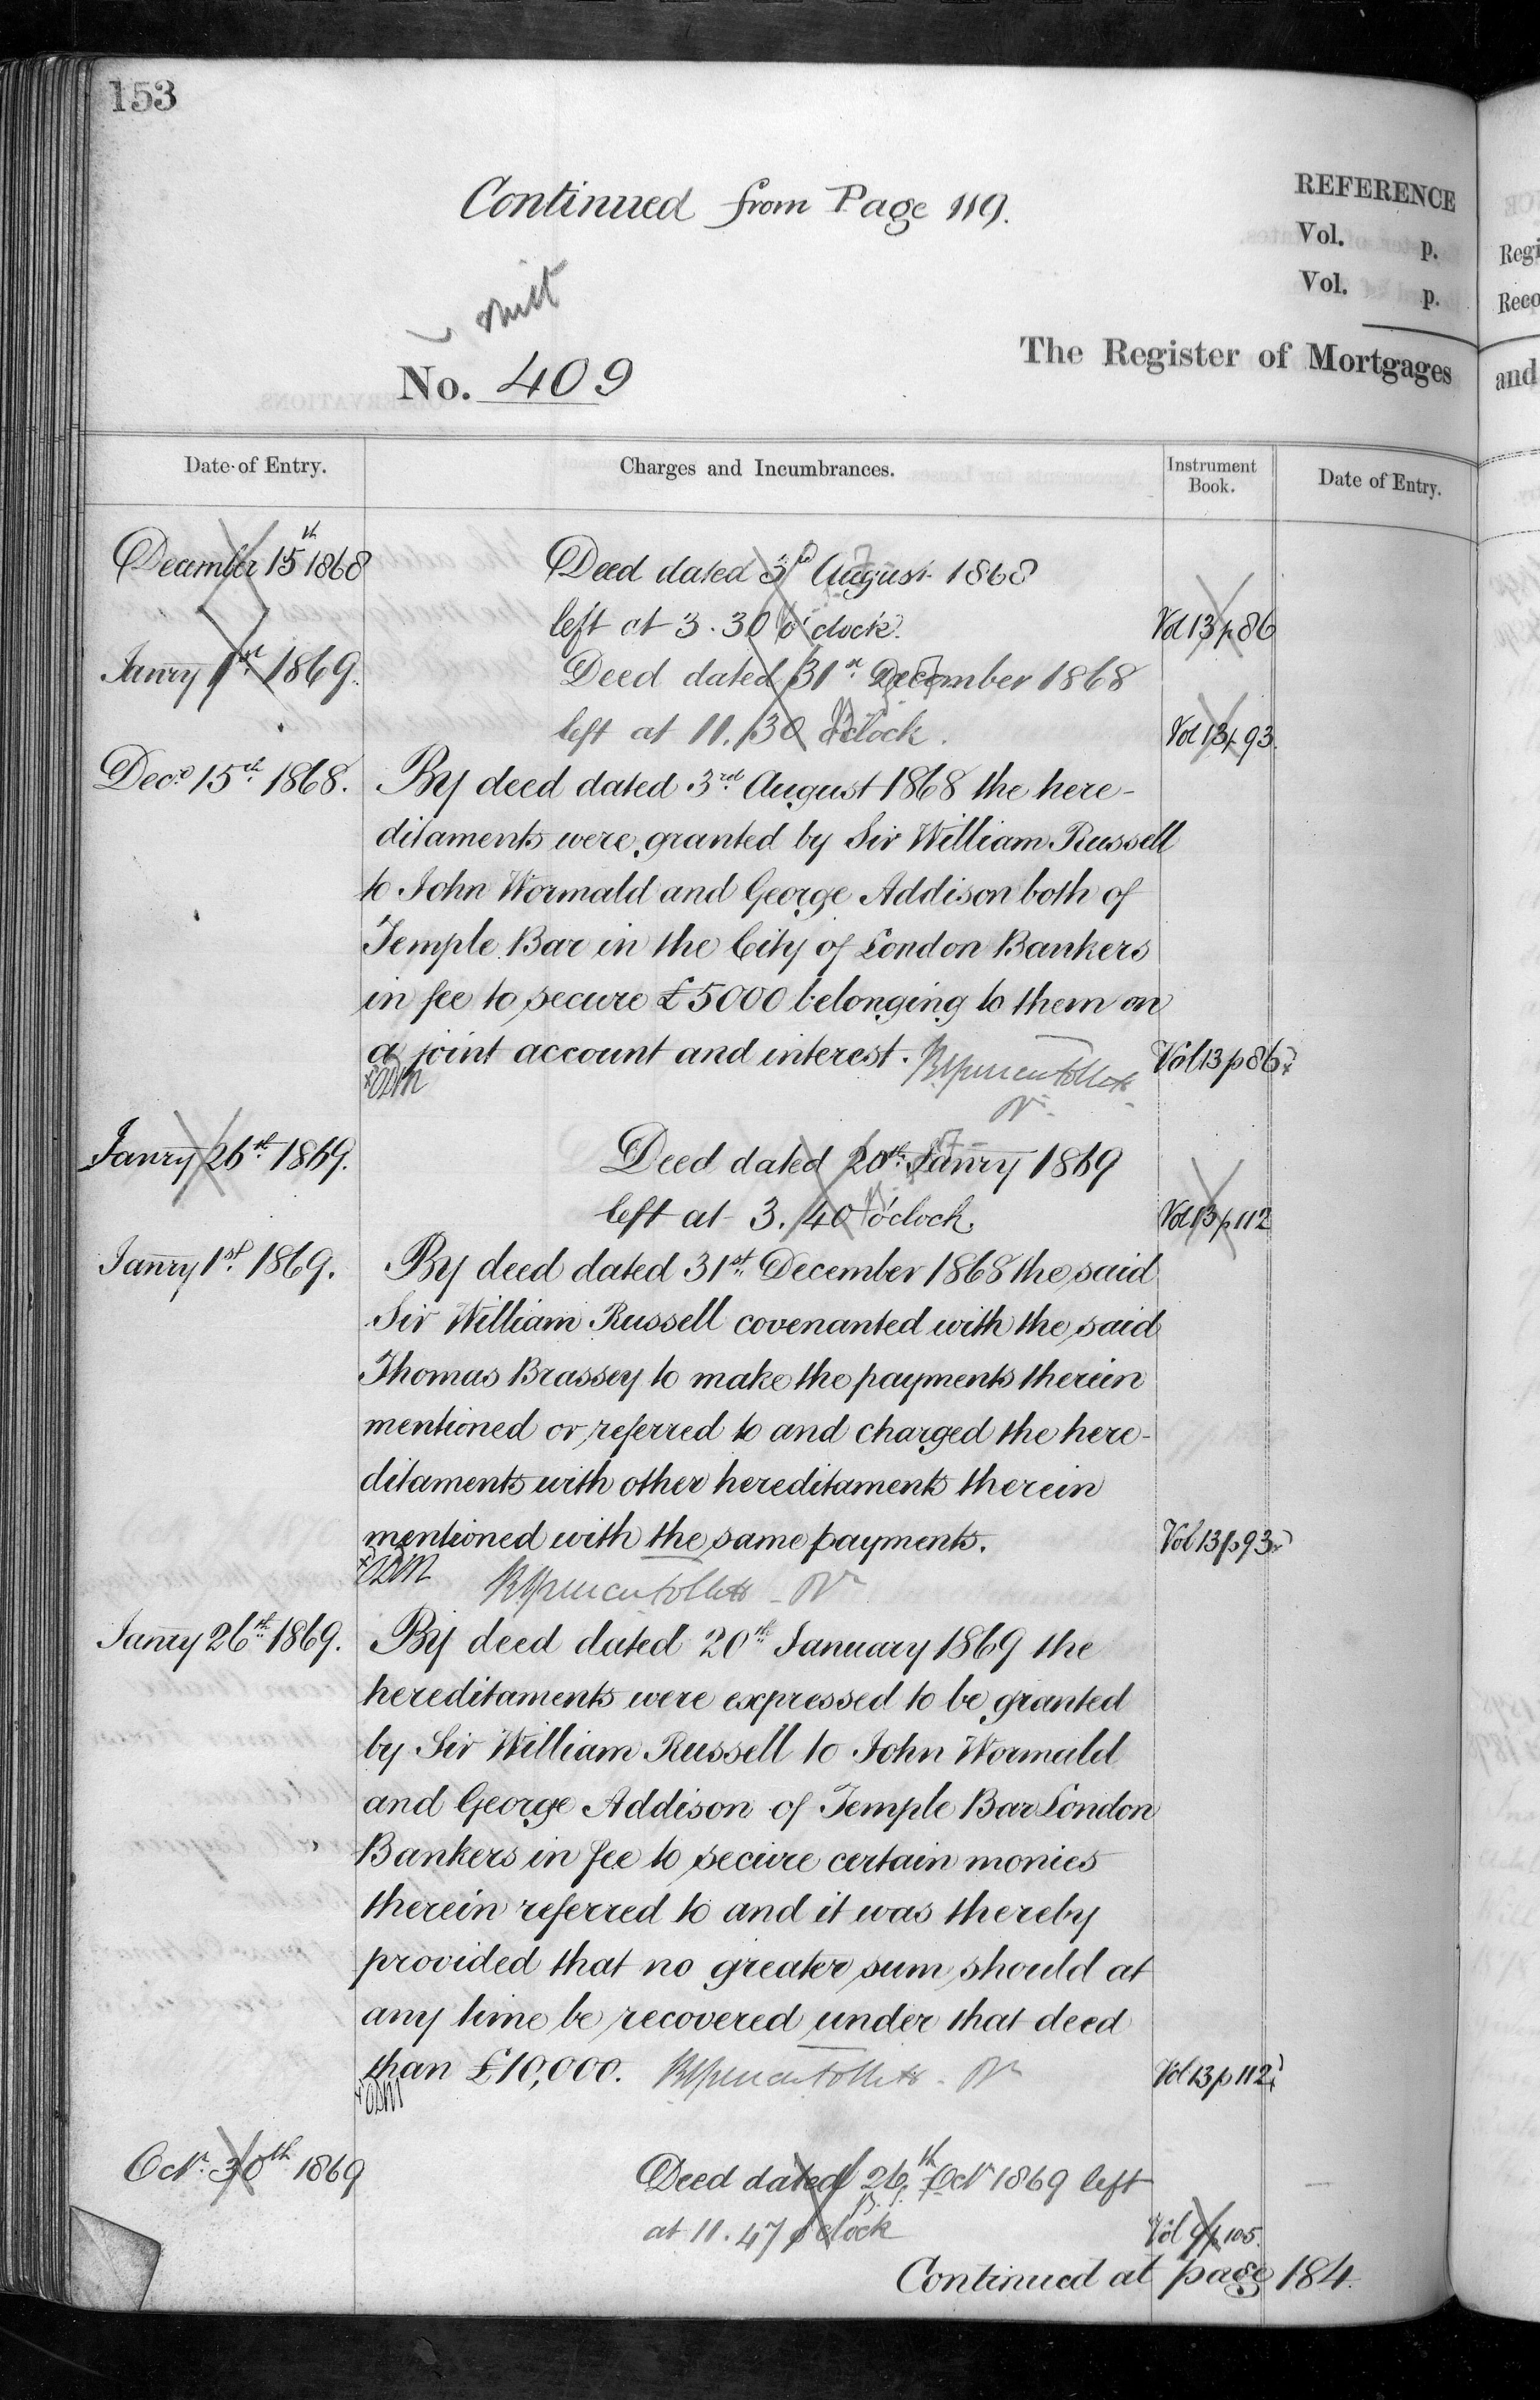 153
Continued from Page 119.
REFERENCE
Vol. p.
Vol. p.
omit
No. 409
The Register of Mortgages
Date of Entry.
Charges and Incumbrances.
Instrument Book.
Date of Entry.
December 15th 1868 Deed dated 3rd August 1868
left at 3.30 o'clock. Vol 13 p 86
Janry 1st 1869. Deed dated 31st December 1868
left at 11.30 o'clock. Vol 13 p 93.
Decr 15th 1868. By deed dated 3rd August 1868 the here-
ditaments were granted by Sir William Russell
to John Wormald and George Addison both of
Temple Bar in the City of London Bankers
in fee to secure £5000 belonging to them on
a joint account and interest. Vol 13 p 86
Janry 26th 1869. Deed dated 20th Janry 1869
left at 3.40 o'clock. Vol 13 p 112
Janry 1st 1869. By deed dated 31st December 1868 the said
Sir William Russell covenanted with the said
Thomas Brassey to make the payments therein
mentioned or referred to and charged the here-
ditaments with other hereditaments therein
mentioned with the same payments. Vol 13 p 93
Janry 26th 1869. By deed dated 20th January 1869 the
hereditaments were expressed to be granted
by Sir William Russell to John Wormald
and George Addison of Temple Bar London
Bankers in fee to secure certain monies
therein referred to and it was thereby
provided that no greater sum should at
any time be recovered under that deed
than £10,000. Vol 13 p 112
Octr 30th 1869 Deed dated 26th Octr 1869 left
at 11.47 o'clock Vol p 105.
Continued at page 184.
Regi
Reco
and